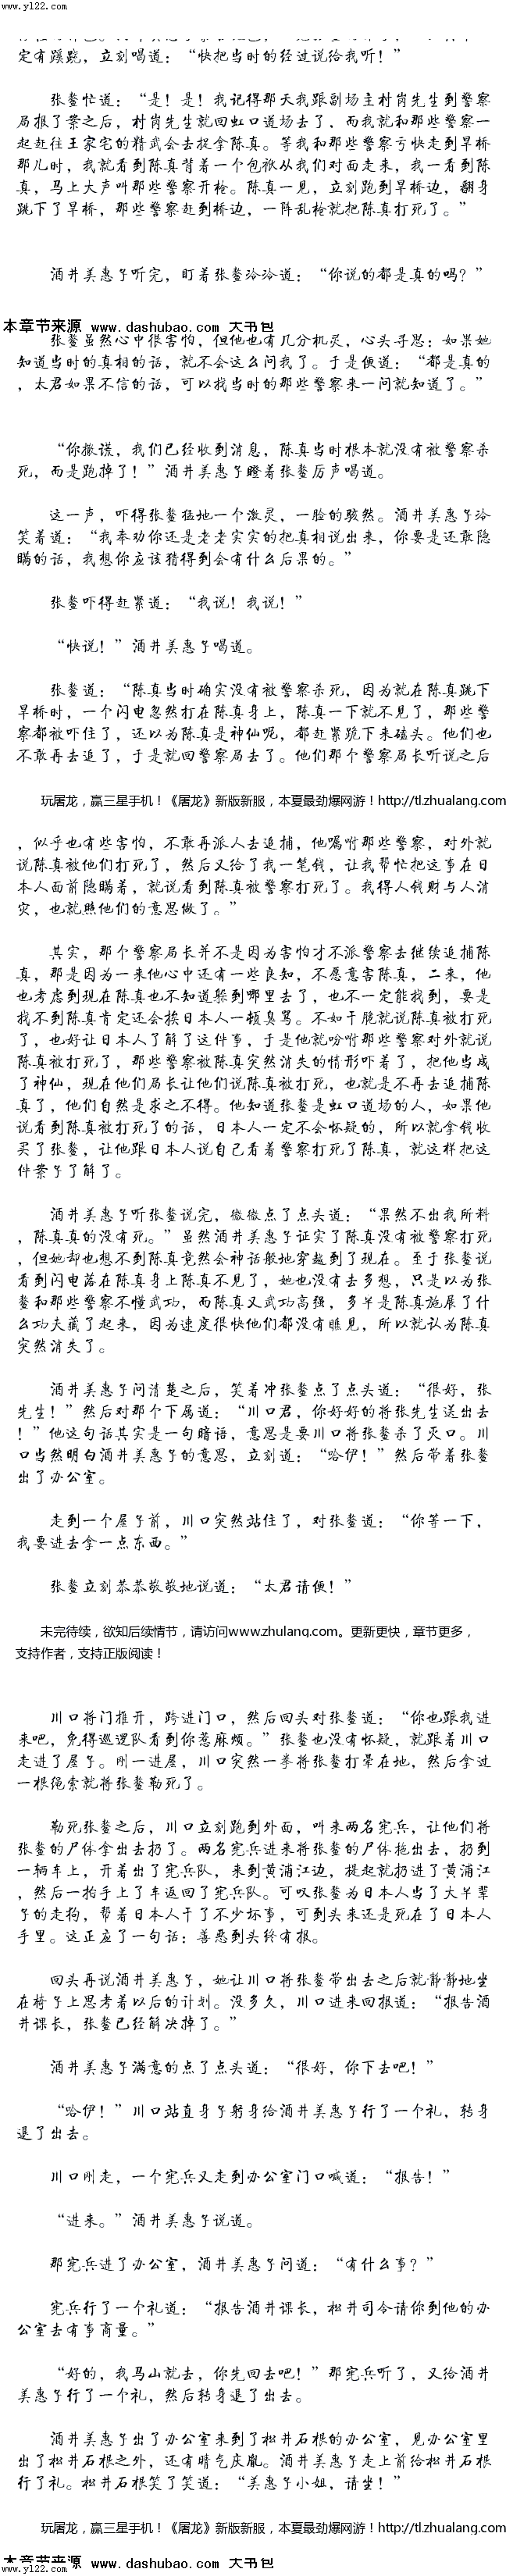 www.yl22.com
定有蹊跷，立刻喝道：“快把当时的经过说给我听！”
张鳌忙道：“是！是！我记得那天我跟副场主村岗先生到警察
局报了案之后，村岗先生就回虹口道场去了，而我就和那些警察一
起赶往王家宅的精武会去捉拿陈真。等我和那些警察亏快走到旱桥
那儿时，我就看到陈真背着一个包袱从我们对面走来，我一看到陈
真，马上大声叫那些警察开枪。陈真一见，立刻跑到旱桥边，翻身
跳下了旱桥，那些警察赶到桥边，一阵乱枪就把陈真打死了。”
酒井美惠子听完，盯着张鳌冷冷道：“你说的都是真的吗？”
本章节来源 www.dashubao.com 大书包
张鳌虽然心中很害怕，但他也有几分机灵，心头寻思：如果她
知道当时的真相的话，就不会这么问我了。于是便道：“都是真的
，太君如果不信的话，可以找当时的那些警察来一问就知道了。”
“你撒谎，我们已经收到消息，陈真当时根本就没有被警察杀
死，而是跑掉了！”酒井美惠子瞪着张鳌厉声喝道。
这一声，吓得张鳌猛地一个激灵，一脸的骇然。酒井美惠子冷
笑着道：“我奉劝你还是老老实实的把真相说出来，你要是还敢隐
瞒的话，我想你应该猜得到会有什么后果的。”
张鳌吓得赶紧道：“我说！我说！”
“快说！”酒井美惠子喝道。
张鳌道：“陈真当时确实没有被警察杀死，因为就在陈真跳下
旱桥时，一个闪电忽然打在陈真身上，陈真一下就不见了，那些警
察都被吓住了，还以为陈真是神仙呢，都赶紧跪下来磕头。他们也
不敢再去追了，于是就回警察局去了。他们那个警察局长听说之后
玩屠龙，赢三星手机！《屠龙》新版新服，本夏最劲爆网游！http://tl.zhualang.com
，似乎也有些害怕，不敢再派人去追捕，他嘱咐那些警察，对外就
说陈真被他们打死了，然后又给了我一笔钱，让我帮忙把这事在日
本人面前隐瞒着，就说看到陈真被警察打死了。我得人钱财与人消
灾，也就照他们的意思做了。”
其实，那个警察局长并不是因为害怕才不派警察去继续追捕陈
真，那是因为一来他心中还有一些良知，不愿意害陈真，二来，他
也考虑到现在陈真也不知道躲到哪里去了，也不一定能找到，要是
找不到陈真肯定还会挨日本人一顿臭骂。不如干脆就说陈真被打死
了，也好让日本人了解了这件事，于是他就吩咐那些警察对外就说
陈真被打死了，那些警察被陈真突然消失的情形吓着了，把他当成
了神仙，现在他们局长让他们说陈真被打死，也就是不再去追捕陈
真了，他们自然是求之不得。他知道张鳌是虹口道场的人，如果他
说看到陈真被打死了的话，日本人一定不会怀疑的，所以就拿钱收
买了张鳌，让他跟日本人说自己看着警察打死了陈真，就这样把这
件案子了解了。
酒井美惠子听张鳌说完，微微点了点头道：“果然不出我所料
，陈真真的没有死。”虽然酒井美惠子证实了陈真没有被警察打死
，但她却也想不到陈真竟然会神话般地穿越到了现在。至于张鳌说
看到闪电落在陈真身上陈真不见了，她也没有去多想，只是以为张
鳌和那些警察不懂武功，而陈真又武功高强，多半是陈真施展了什
么功夫藏了起来，因为速度很快他们都没有瞧见，所以就认为陈真
突然消失了。
酒井美惠子问清楚之后，笑着冲张鳌点了点头道：“很好，张
先生！”然后对那个下属道：“川口君，你好好的将张先生送出去
！”他这句话其实是一句暗语，意思是要川口将张鳌杀了灭口。川
口当然明白酒井美惠子的意思，立刻道：“哈伊！”然后带着张鳌
出了办公室。
走到一个屋子前，川口突然站住了，对张鳌道：“你等一下，
我要进去拿一点东西。”
张鳌立刻恭恭敬敬地说道：“太君请便！”
未完待续，欲知后续情节，请访问www.zhulang.com。更新更快，章节更多，
支持作者，支持正版阅读！
川口将门推开，跨进门口，然后回头对张鳌道：“你也跟我进
来吧，免得巡逻队看到你惹麻烦。”张鳌也没有怀疑，就跟着川口
走进了屋子。刚一进屋，川口突然一拳将张鳌打晕在地，然后拿过
一根绳索就将张鳌勒死了。
勒死张鳌之后，川口立刻跑到外面，叫来两名宪兵，让他们将
张鳌的尸体拿出去扔了。两名宪兵进来将张鳌的尸体拖出去，扔到
一辆车上，开着出了宪兵队，来到黄浦江边，提起就扔进了黄浦江
，然后一拍手上了车返回了宪兵队。可叹张鳌为日本人当了大半辈
子的走狗，帮着日本人干了不少坏事，可到头来还是死在了日本人
手里。这正应了一句话：善恶到头终有报。
回头再说酒井美惠子，她让川口将张鳌带出去之后就静静地坐
在椅子上思考着以后的计划。没多久，川口进来回报道：“报告酒
井课长，张鳌已经解决掉了。”
酒井美惠子满意的点了点头道：“很好，你下去吧！”
“哈伊！”川口站直身子躬身给酒井美惠子行了一个礼，转身
退了出去。
川口刚走，一个宪兵又走到办公室门口喊道：“报告！”
“进来。”酒井美惠子说道。
那宪兵进了办公室，酒井美惠子问道：“有什么事？”
宪兵行了一个礼道：“报告酒井课长，松井司令请你到他的办
公室去有事商量。”
“好的，我马山就去，你先回去吧！”那宪兵听了，又给酒井
美惠子行了一个礼，然后转身退了出去。
酒井美惠子出了办公室来到了松井石根的办公室，见办公室里
出了松井石根之外，还有晴气庆胤。酒井美惠子走上前给松井石根
行了礼。松井石根笑了笑道：“美惠子小姐，请坐！”
玩屠龙，赢三星手机！《屠龙》新版新服，本夏最劲爆网游！http://tl.zhualang.com
本章节来源 www.dashubao.com 大书包
www.yl22.com